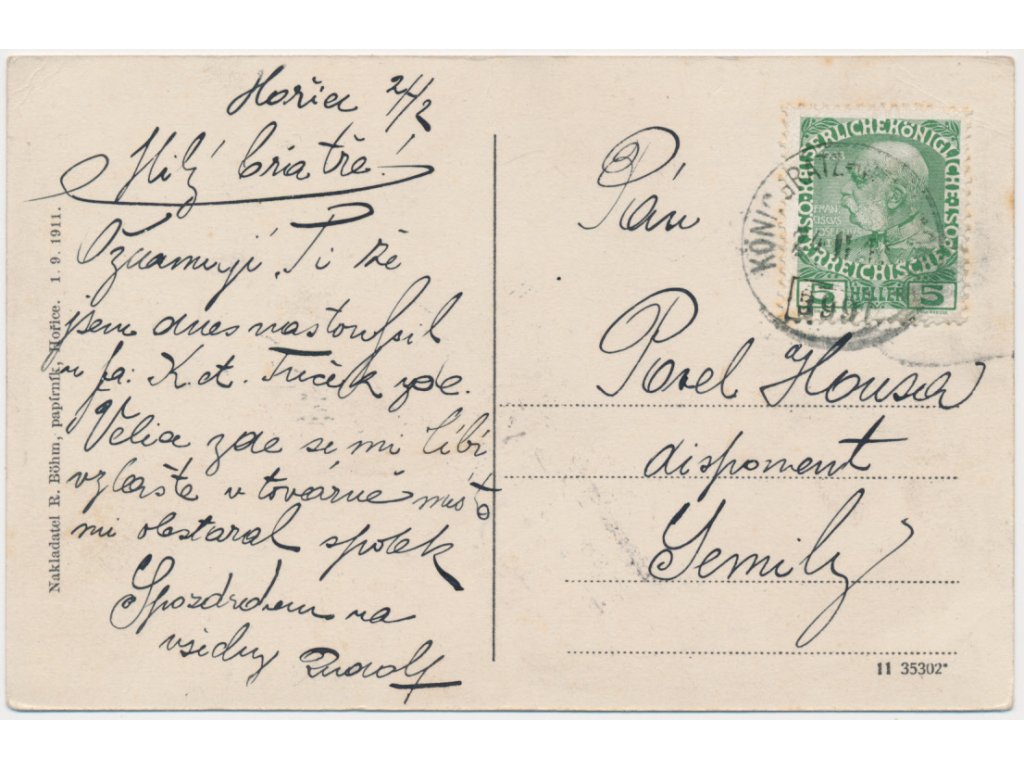 Hořice 2/2
Milý bratře!
Oznamuji Ti že
jsem dnes nastoupil
u fa: K. et. Tuček zde.
Velice zde se mi líbí
vzláště v továrně místo
mi obstaral spolek
S pozdravem na
všechny Rudolf
Nakladatel R. Böhm, papírník, Hořice. 1. 9. 1911.
Pán
Pavel Housa
disponent
Semily
11 35302*
KAISERLICHE KÖNIGLICHE
ÖSTERREICHISCHE
5 HELLER 5
KÖNIGGRATZ